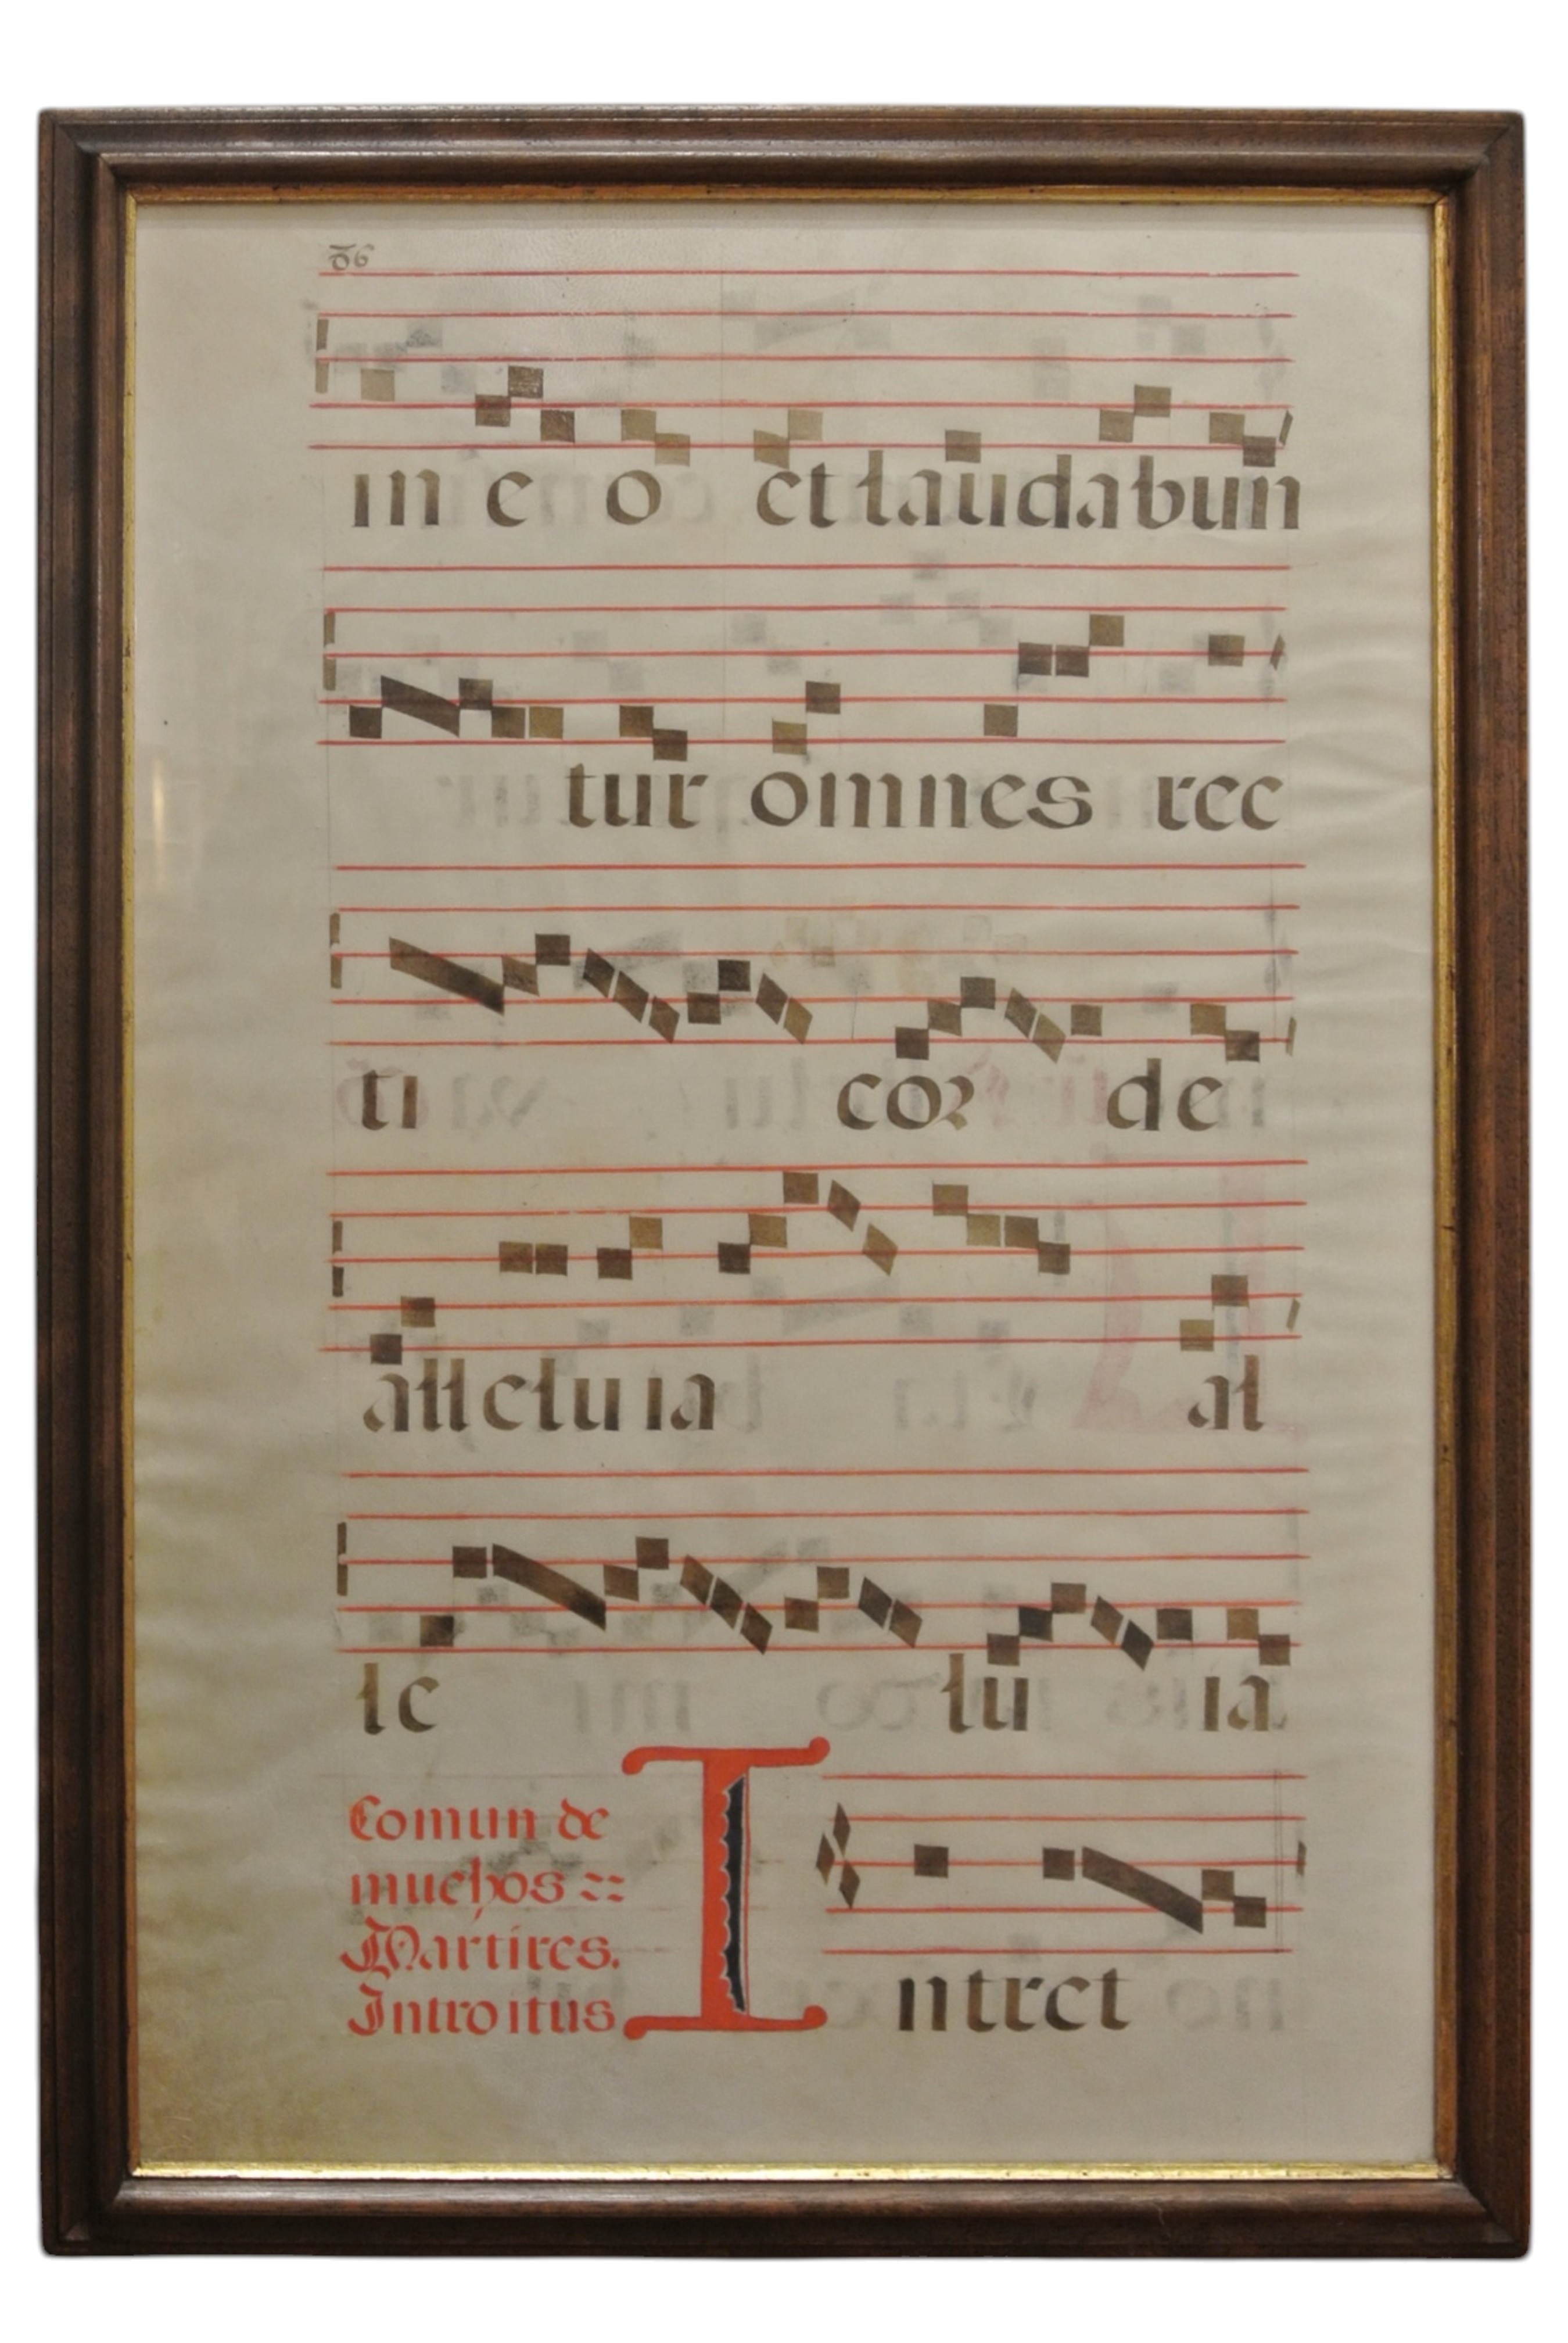 86
in e o et laudabun
tur omnes rec
ti cor de
alleluia al
le lu ia
Comun de
muchos ::
Martires.
Introitus
Intret